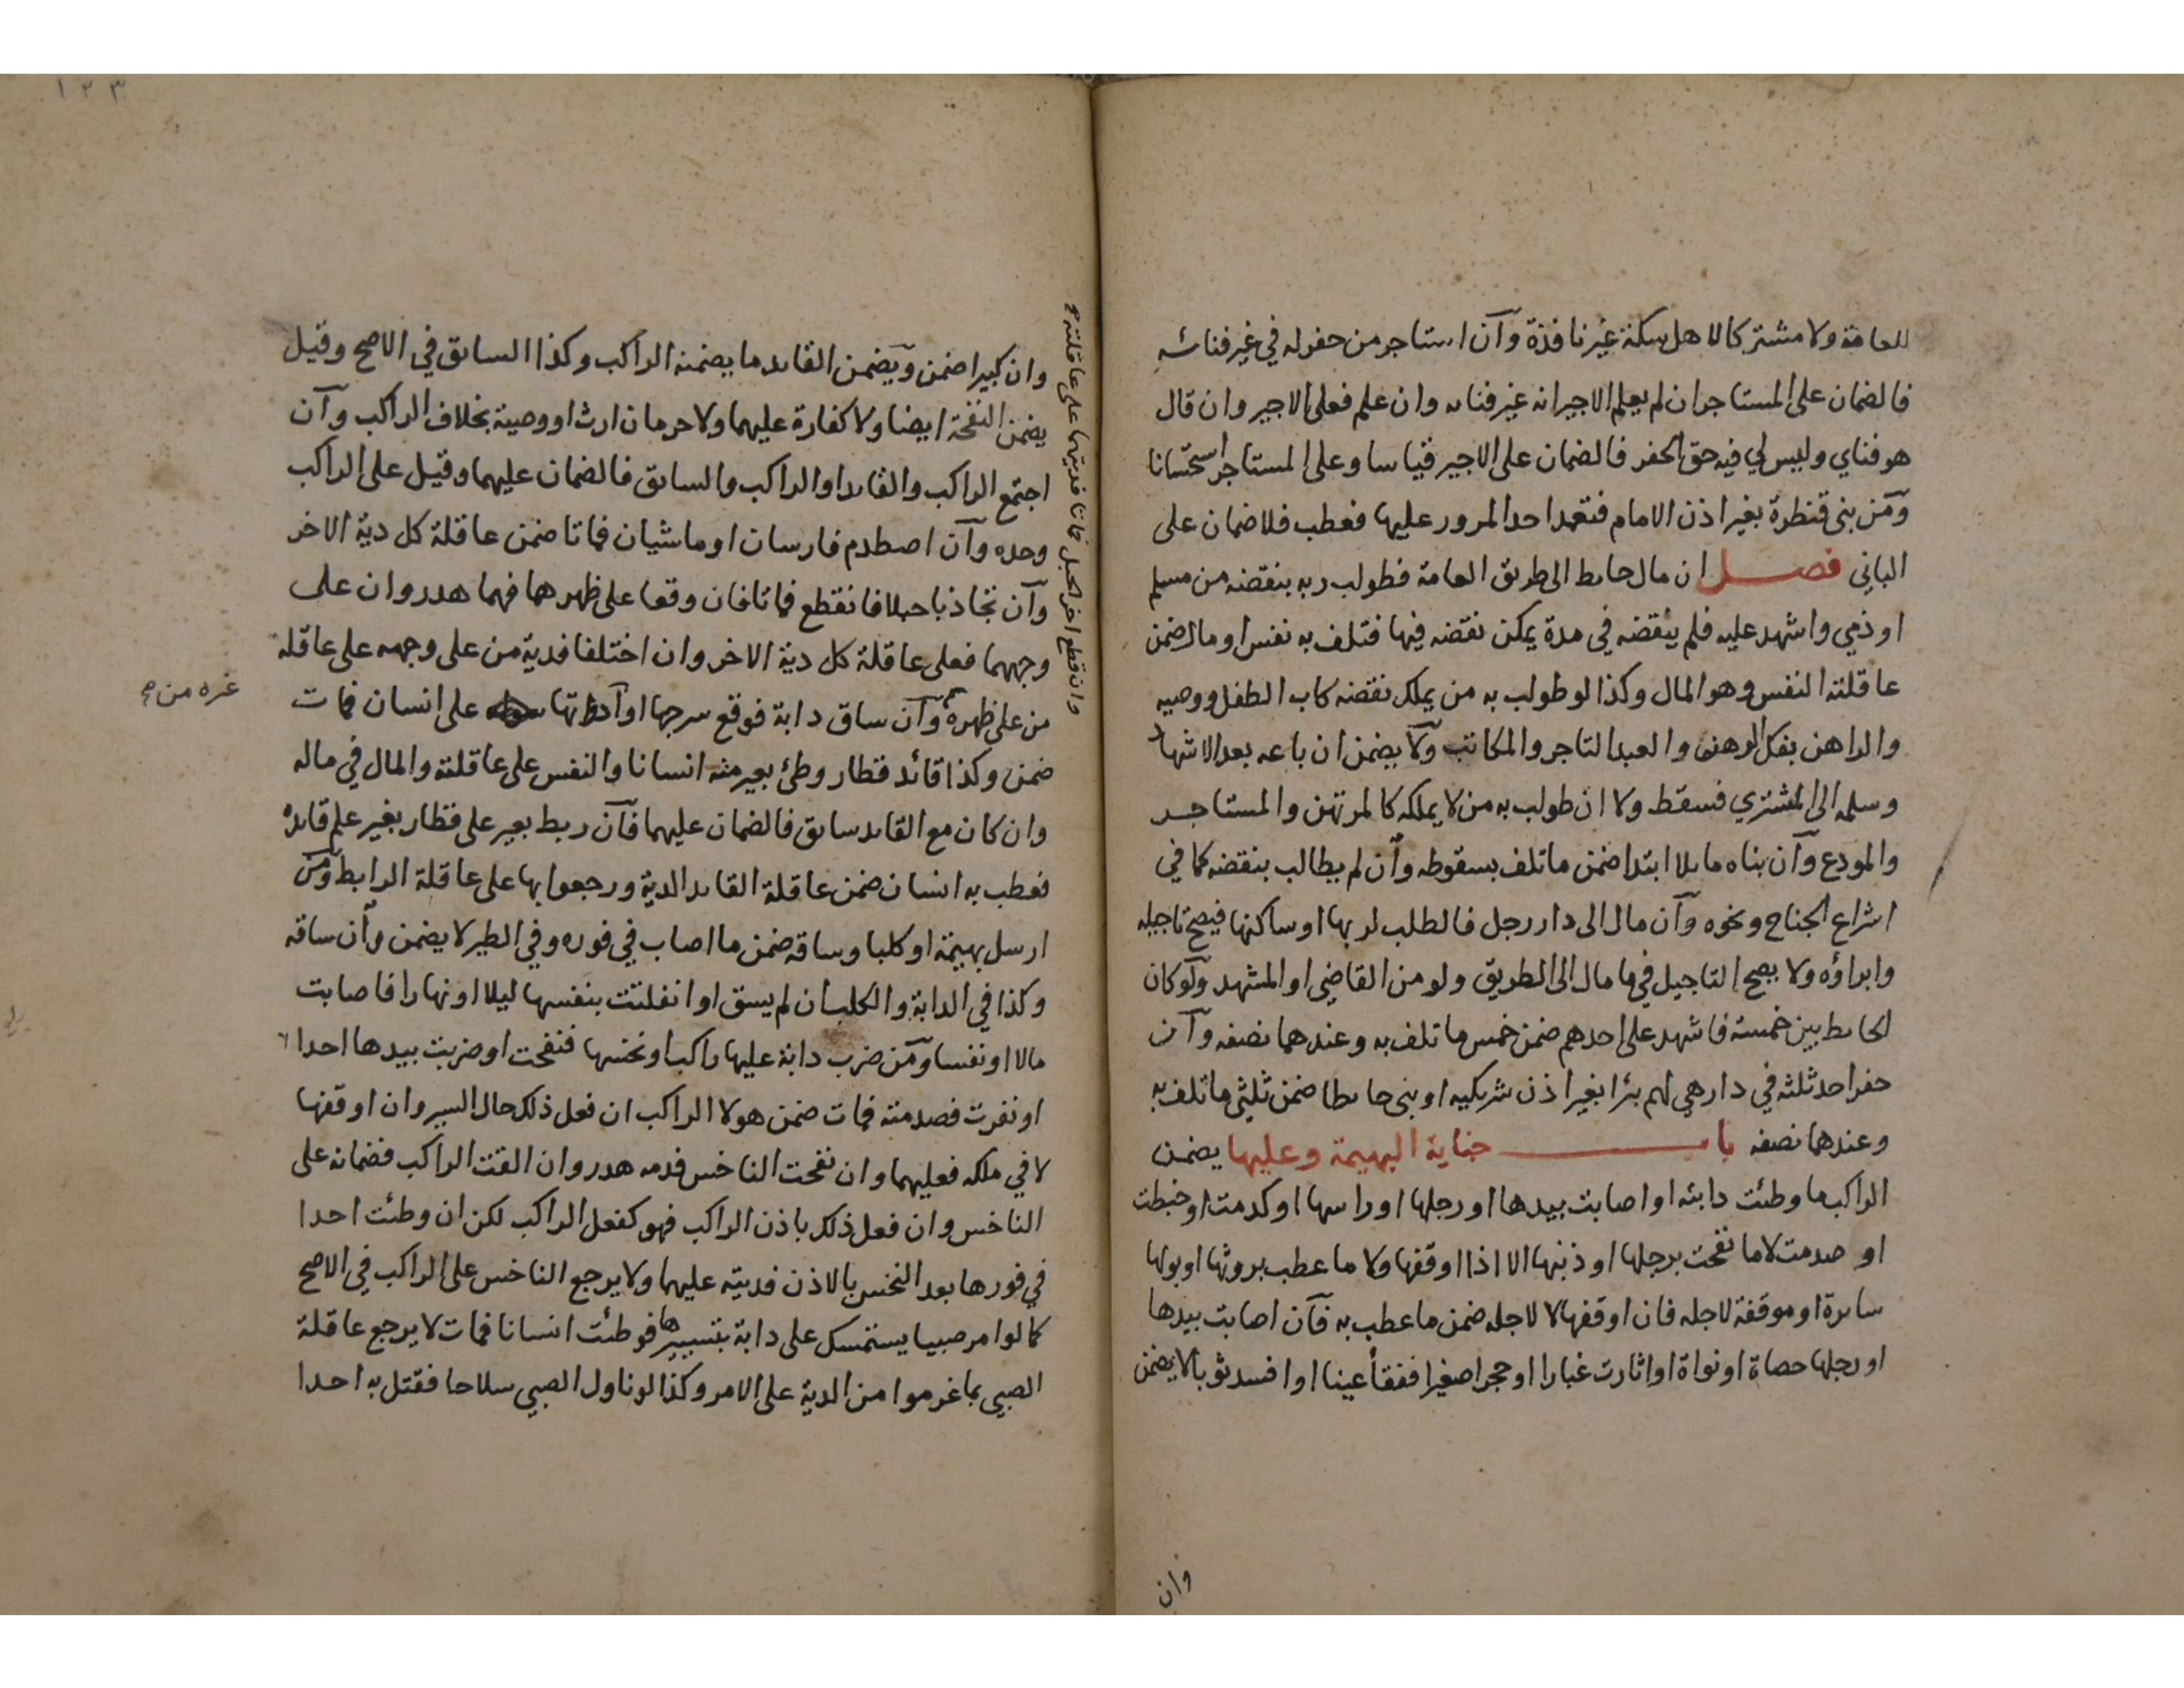 للعامة ولا مشتركا لاهل سكة غير نافذة وآن استاجر من حفر له في غير فنائه
فالضمان على المستاجر ان لم يعلم الاجير انه غير فنايه وان علم فعلى الاجير وان قال
هو فناي وليس لي فيه حق الحفر فالضمان على الاجير قياسا وعلى المستاجر استحسانا
ومن بنى قنطرة بغير اذن الامام فتعمد احد المرور عليها فعطب فلا ضمان على
الباني فصل ان مال حايط الى طريق العامة فطولب ربه بنقضه من مسلم
او ذمي واشهد عليه فلم ينقضه في مدة يمكن نقضه فيها فتلف به نفس او مال ضمن
عاقلته النفس وهو المال وكذا لو طولب به من يملك نقضه كاب الطفل ووصيه
والراهن بفك الرهن والعبد التاجر والمكاتب ولا يضمن ان باعه بعد الاشهاد
وسلمه الى المشتري فسقط ولا ان طولب به من لا يملكه كالمرتهن والمستاجر
والمودع وآن بناه مايلا ابتدا ضمن ما تلف بسقوطه وآن لم يطالب بنقضه كما في
اشراع الجناح ونحوه وآن مال الى دار رجل فالطلب لربها او ساكنها فيصح تاجيله
وابراؤه ولا يصح التاجيل فيما مال الى الطريق ولو من القاضي او المشهد ولو كان
الحايط بين خمسة فاشهد على احدهم ضمن خمس ما تلف به وعندهما نصفه وآن
حفر احد ثلثة في دار هي لهم بئرا بغير اذن شريكيه او بنى حايطا ضمن ثلثي ما تلف به
وعندهما نصفه باب جناية البهيمة وعليها يضمن
الراكب ما وطئت دابته او اصابت بيدها او رجلها او راسها او كدمت او خبطت
او صدمت لا ما نفحت برجلها او ذنبها الا اذا اوقفها ولا ما عطب بروثها او بولها
سايرة او موقفة لاجله فان اوقفها لا لاجله ضمن ما عطب به فآن اصابت بيدها
او رجلها حصاة او نواة او اثارت غبارا او حجرا صغيرا ففقأ عينا او افسد ثوبا لا يضمن
وان
١٣٣
وان كبيرا ضمن ويضمن القايد ما يضمنه الراكب وكذا السايق في الاصح وقيل
يضمن النفحة ايضا ولا كفارة عليهما ولا حرمان ارث او وصية بخلاف الراكب وآن
اجتمع الراكب والقايد او الراكب والسايق فالضمان عليهما وقيل على الراكب
وحده وآن اصطدم فارسان او ماشيان فماتا ضمن عاقلة كل دية الاخر
وآن تجاذبا حبلا فانقطع فماتا فان وقعا على ظهرهما فهما هدر وان على
وجههما فعلى عاقلة كل دية الاخر وان اختلفا فدية من على وجهه على عاقلة
من على ظهره وآن ساق دابة فوقع سرجها او آداتها على انسان فمات
ضمن وكذا قائد قطار وطئ بعير منه انسانا والنفس على عاقلته والمال في ماله
وان كان مع القايد سايق فالضمان عليهما فآن ربط بعير على قطار بغير علم قايده
فعطب به انسان ضمن عاقلة القايد الدية ورجعوا بها على عاقلة الرابط ومن
ارسل بهيمة او كلبا وساقه ضمن ما اصاب في فوره وفي الطير لا يضمن وآن ساقه
وكذا في الدابة والكلب ان لم يسق او انفلتت بنفسها ليلا او نهارا فاصابت
مالا او نفسا ومن ضرب دابة عليها راكب او نخسها فنفحت او ضربت بيدها احدا
او نفرت فصدمته فمات ضمن هو لا الراكب ان فعل ذلك حال السير وان اوقفها
لا في ملكه فعليهما وان نفحت الناخس فدمه هدر وان القت الراكب فضمانه على
الناخس وان فعل ذلك باذن الراكب فهو كفعل الراكب لكن ان وطئت احدا
في فورها بعد النخس بالاذن فديته عليهما ولا يرجع الناخس على الراكب في الاصح
كما لو امر صبيا يستمسك على دابة بتسييرها فوطئت انسانا فمات لا يرجع عاقلة
الصبي بما غرموا من الدية على الامر وكذا لو ناول الصبي سلاحا فقتل به احدا
وان قطع اخر الحبل فماتا فديتهما على عاقلته
غره من